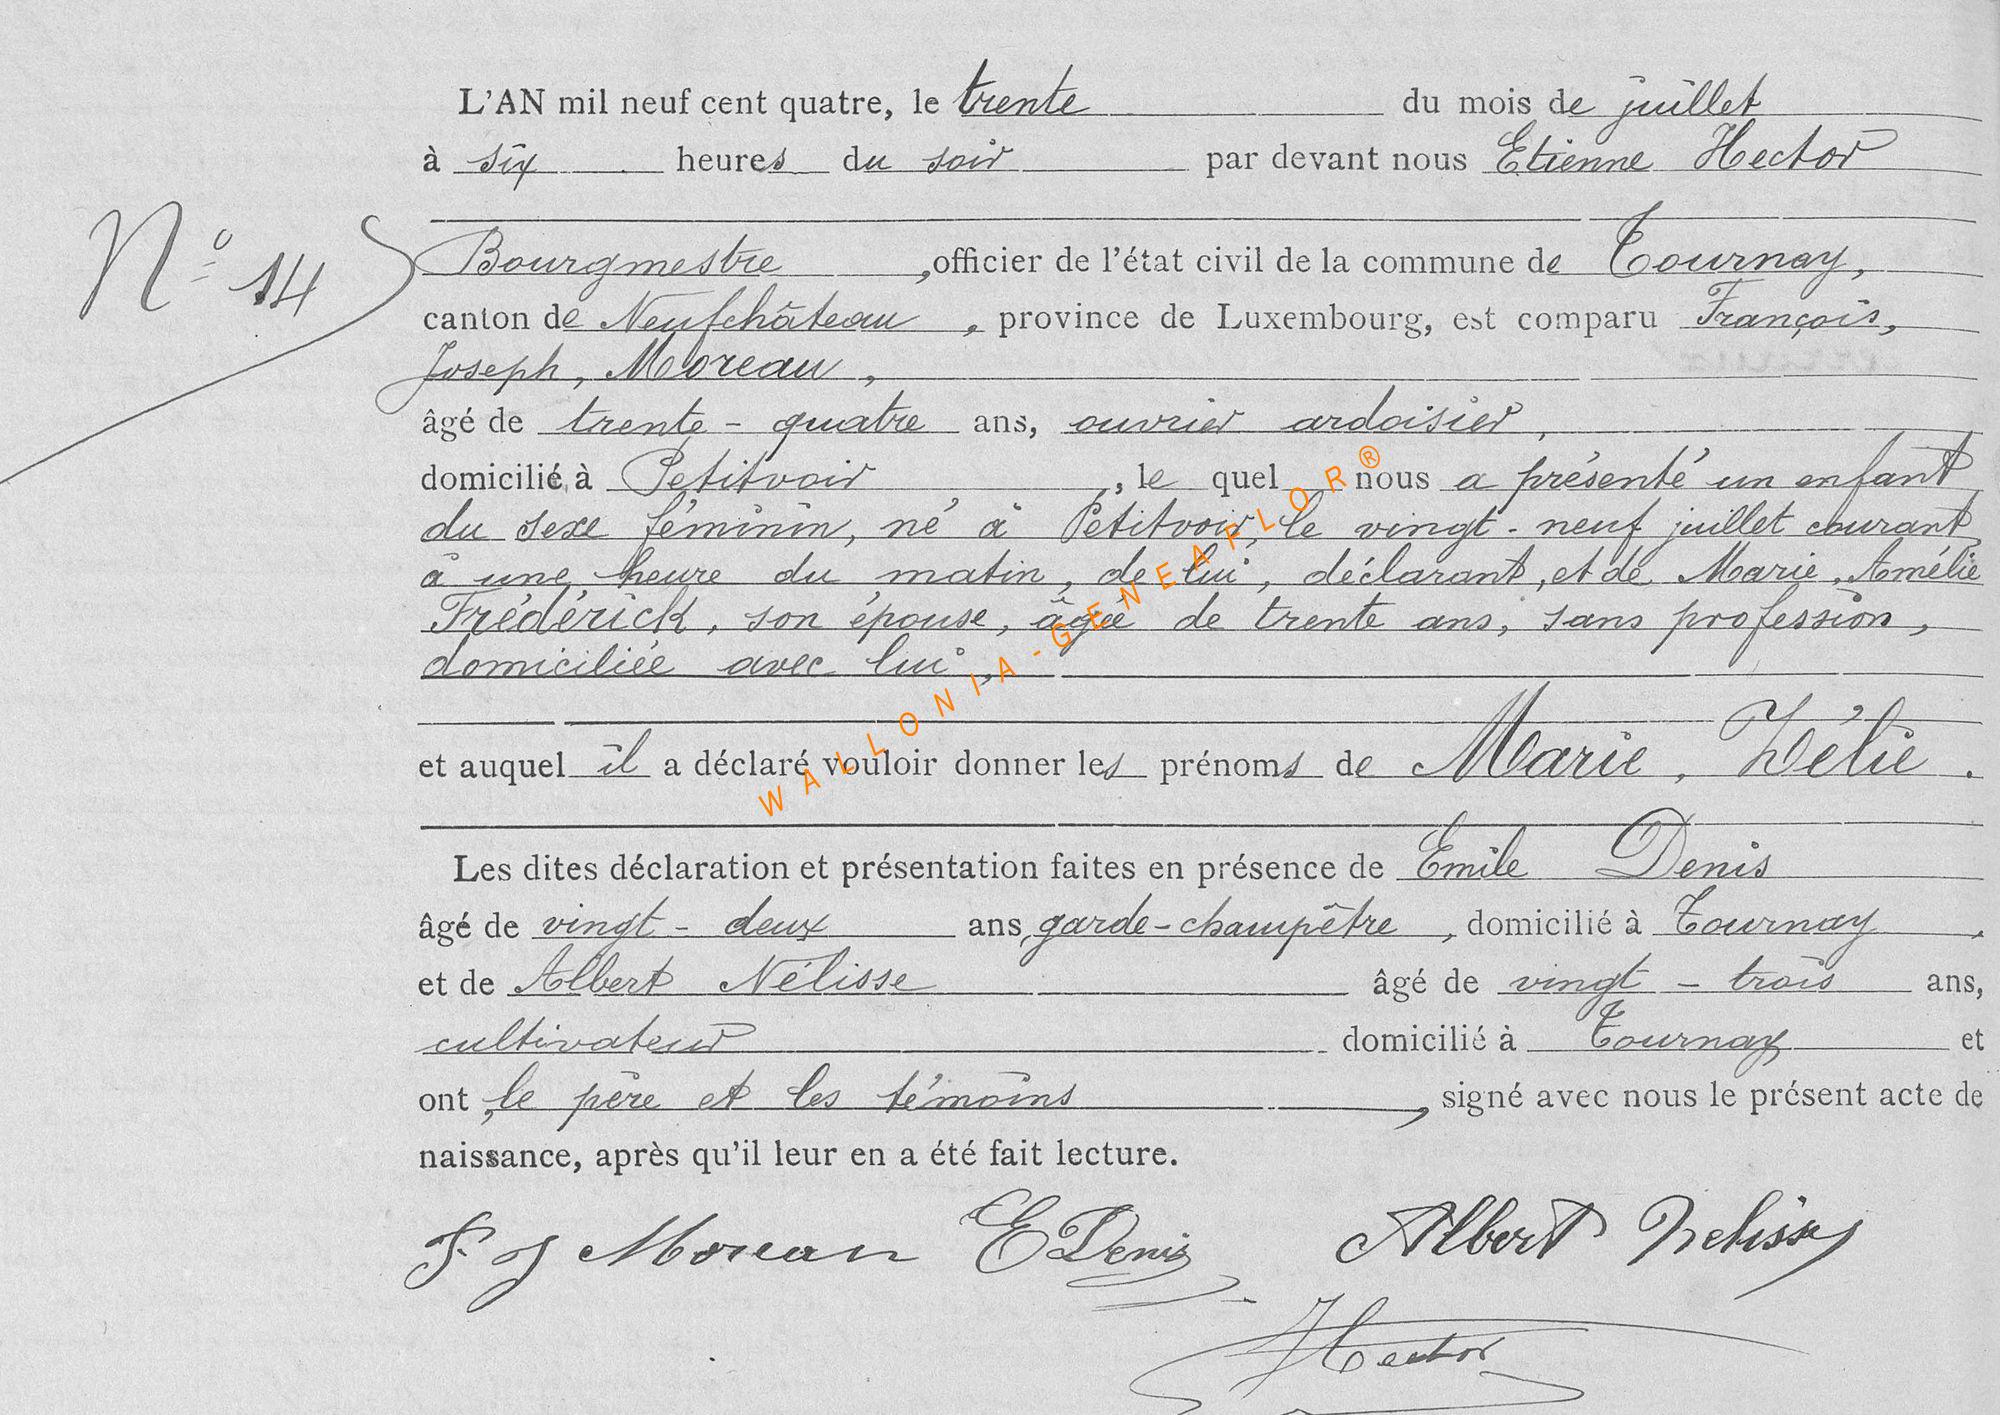 L'AN mil neuf cent quatre, le trente du mois de juillet
à six heures du soir par devant nous Etienne Hector
N° 14
Bourgmestre, officier de l'état civil de la commune de Tournay,
canton de Neufchâteau, province de Luxembourg, est comparu François,
Joseph, Moreau,
âgé de trente-quatre ans, ouvrier ardoisier,
domicilié à Petitvoir, le quel nous a présenté un enfant
du sexe féminin, né à Petitvoir, le vingt-neuf juillet courant
à une heure du matin, de lui, déclarant, et de Marie, Amélie
Frédérick, son épouse, âgée de trente ans, sans profession,
domiciliée avec lui,
et auquel il a déclaré vouloir donner les prénoms de Marie, Zélie.
Les dites déclaration et présentation faites en présence de Emile Denis
âgé de vingt-deux ans, garde-champêtre, domicilié à Tournay,
et de Albert Nélisse âgé de vingt-trois ans,
cultivateur domicilié à Tournay et
ont, le père et les témoins, signé avec nous le présent acte de
naissance, après qu'il leur en a été fait lecture.
F J Moreau E Denis Albert Nelisse
Hector
WALLONIA-GENEAFLOR®